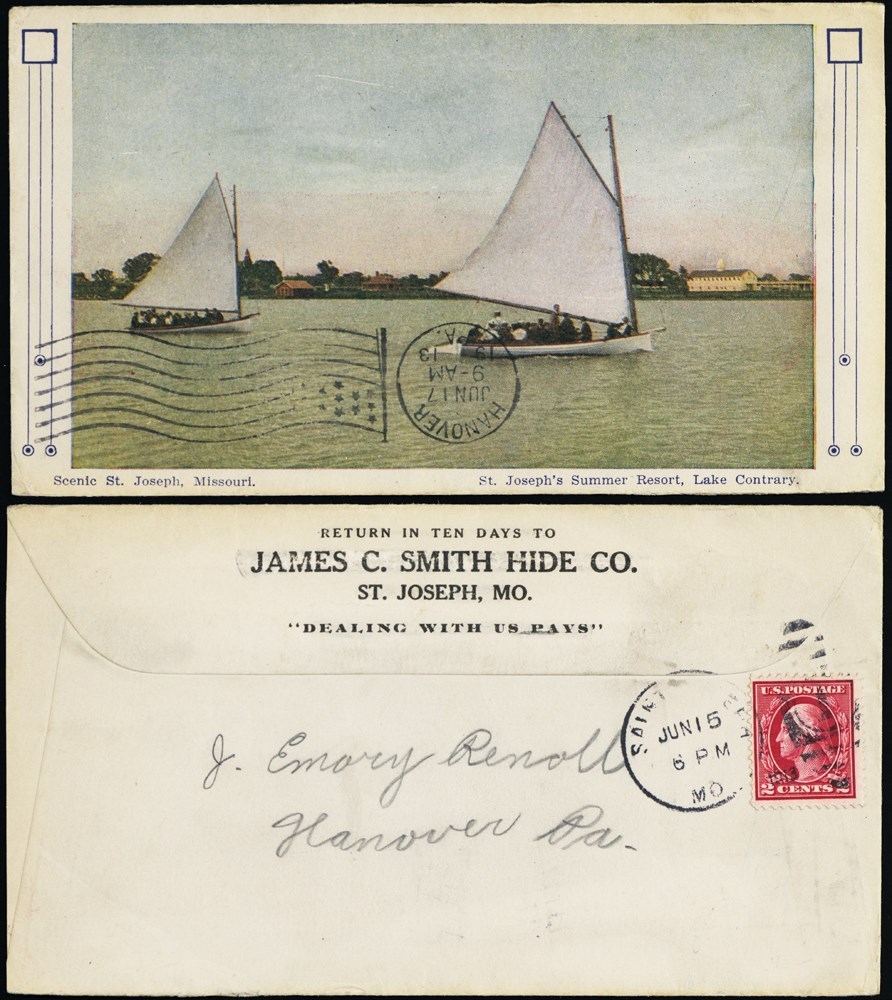 HANOVER
PA.
JUN 17
9-AM
19 13
Scenic St. Joseph, Missouri.
St. Joseph's Summer Resort, Lake Contrary.
RETURN IN TEN DAYS TO
JAMES C. SMITH HIDE CO.
ST. JOSEPH, MO.
"DEALING WITH US PAYS"
SAINT
JUN 15
6 PM
MO
U.S. POSTAGE
2 CENTS 2
J. Emory Renoll
Hanover Pa.